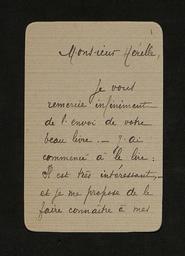 Monsieur Hérelle,
Je vous
remercie infiniment
de l'envoi de votre
beau livre. — J'ai
commencé à le lire:
Il est très intéressant, —
et je me propose de le
faire connaître à mes